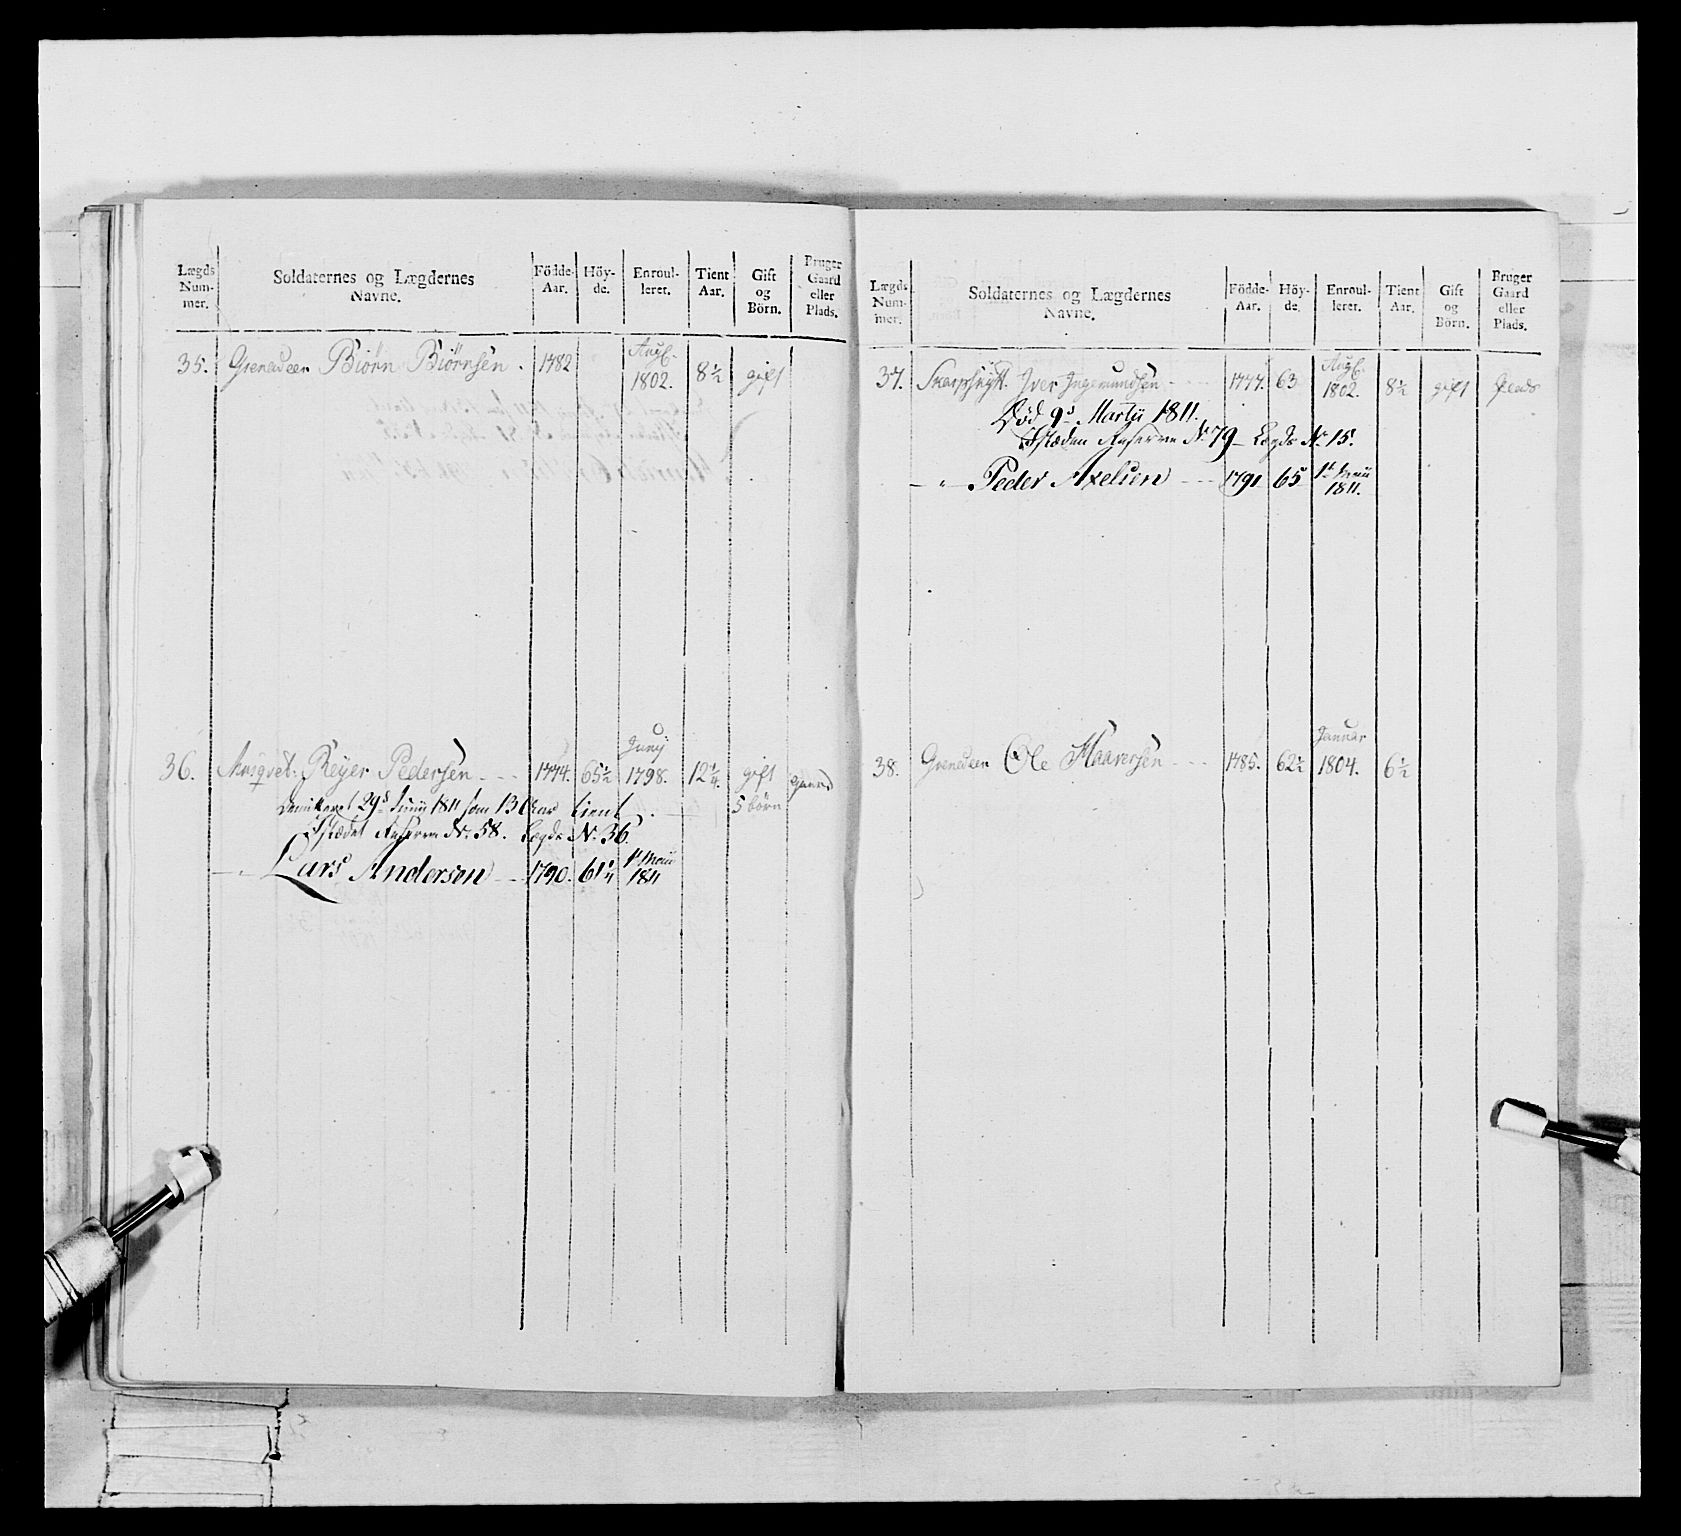 Lægds Num-mer. Soldaternes og Lægdernes Navne. Födde-Aar. Höy-de. Enroul-leret. Tient Aar. Gift og Börn. Bruger Gaard eller Plads.
35. Grenadeer Biørn Biørnsen. 1782 Augt. 1802. 8½ gift
36. Musqvet. Reyer Pedersen 1774. 65½ Junij 1798. 12¼ gift 5 börn gaard
Demitteret 29d Junij 1811 som 13 Aar tient.
Istædet Reserve Nr. 58. Lægds Nr. 36.
— " — Lars Andersen 1790. 61¼ 1t Maii 1811
Lægds Num-mer. Soldaternes og Lægdernes Navne. Födde-Aar. Höy-de. Enroul-leret. Tient Aar. Gift og Börn. Bruger Gaard eller Plads.
37. Skarpskytt. Iver Ingemundsen 1777. 63 Augt. 1802. 8½ gift Plads
Död 9d Martii 1811.
Istæden Reserve Nr 79 Lægds Nr. 15.
— " — Peder Axelsen 1791 65 1t Maii 1811.
38. Grenadeer Ole Haaversen 1785. 62½ Januar 1804. 6½